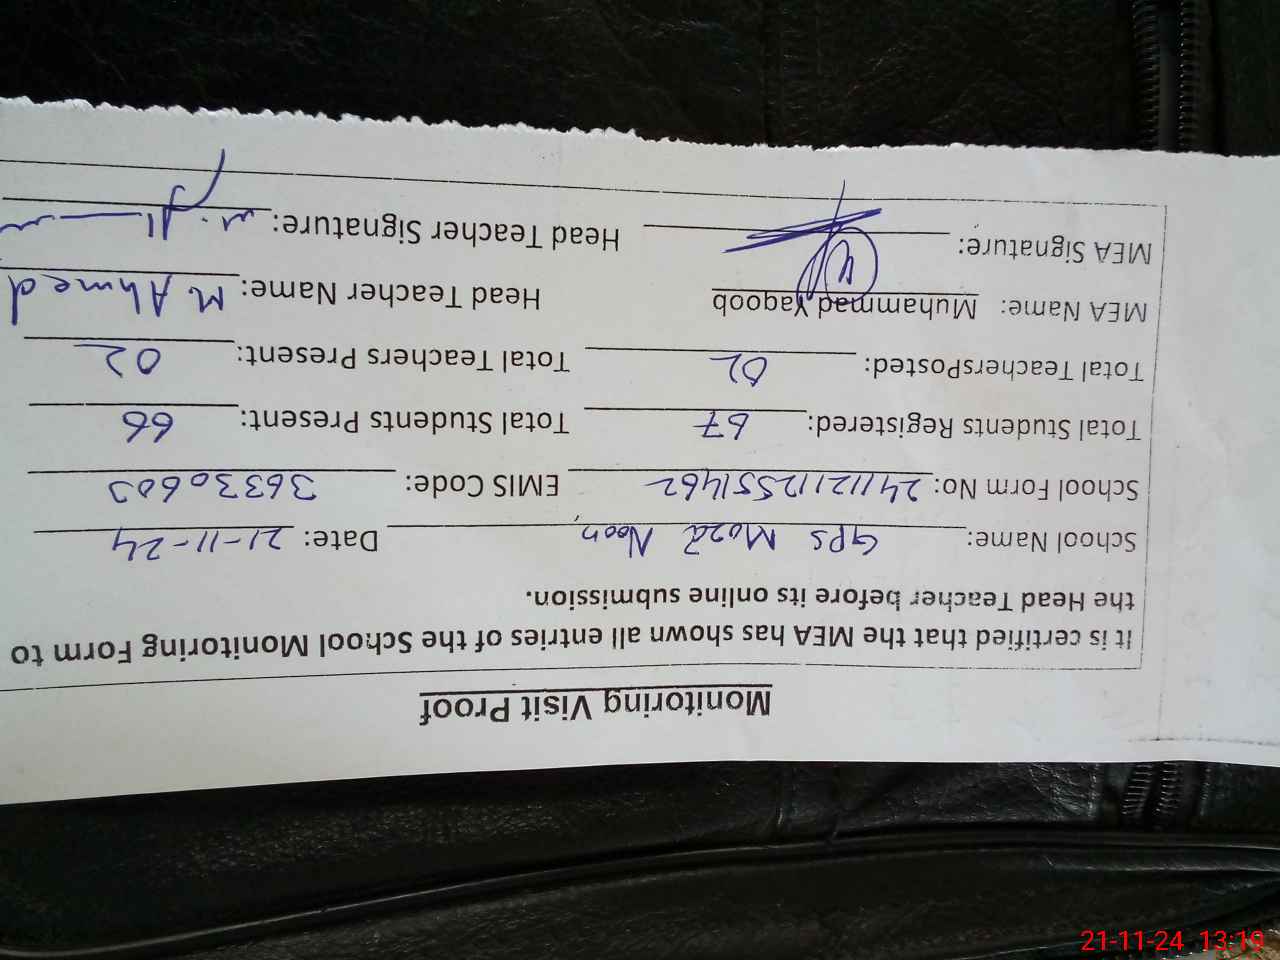 Monitoring Visit Proof
It is certified that the MEA has shown all entries of the School Monitoring Form to
the Head Teacher before its online submission.
School Name: GPS Moza Noon Date: 21-11-24
School Form No: 24112112551462 EMIS Code: 36330603
Total Students Registered: 67 Total Students Present: 66
Total TeachersPosted: 02 Total Teachers Present: 02
MEA Name: Muhammad Yaqoob Head Teacher Name: M. Ahmed
MEA Signature: Head Teacher Signature:
21-11-24 13:19